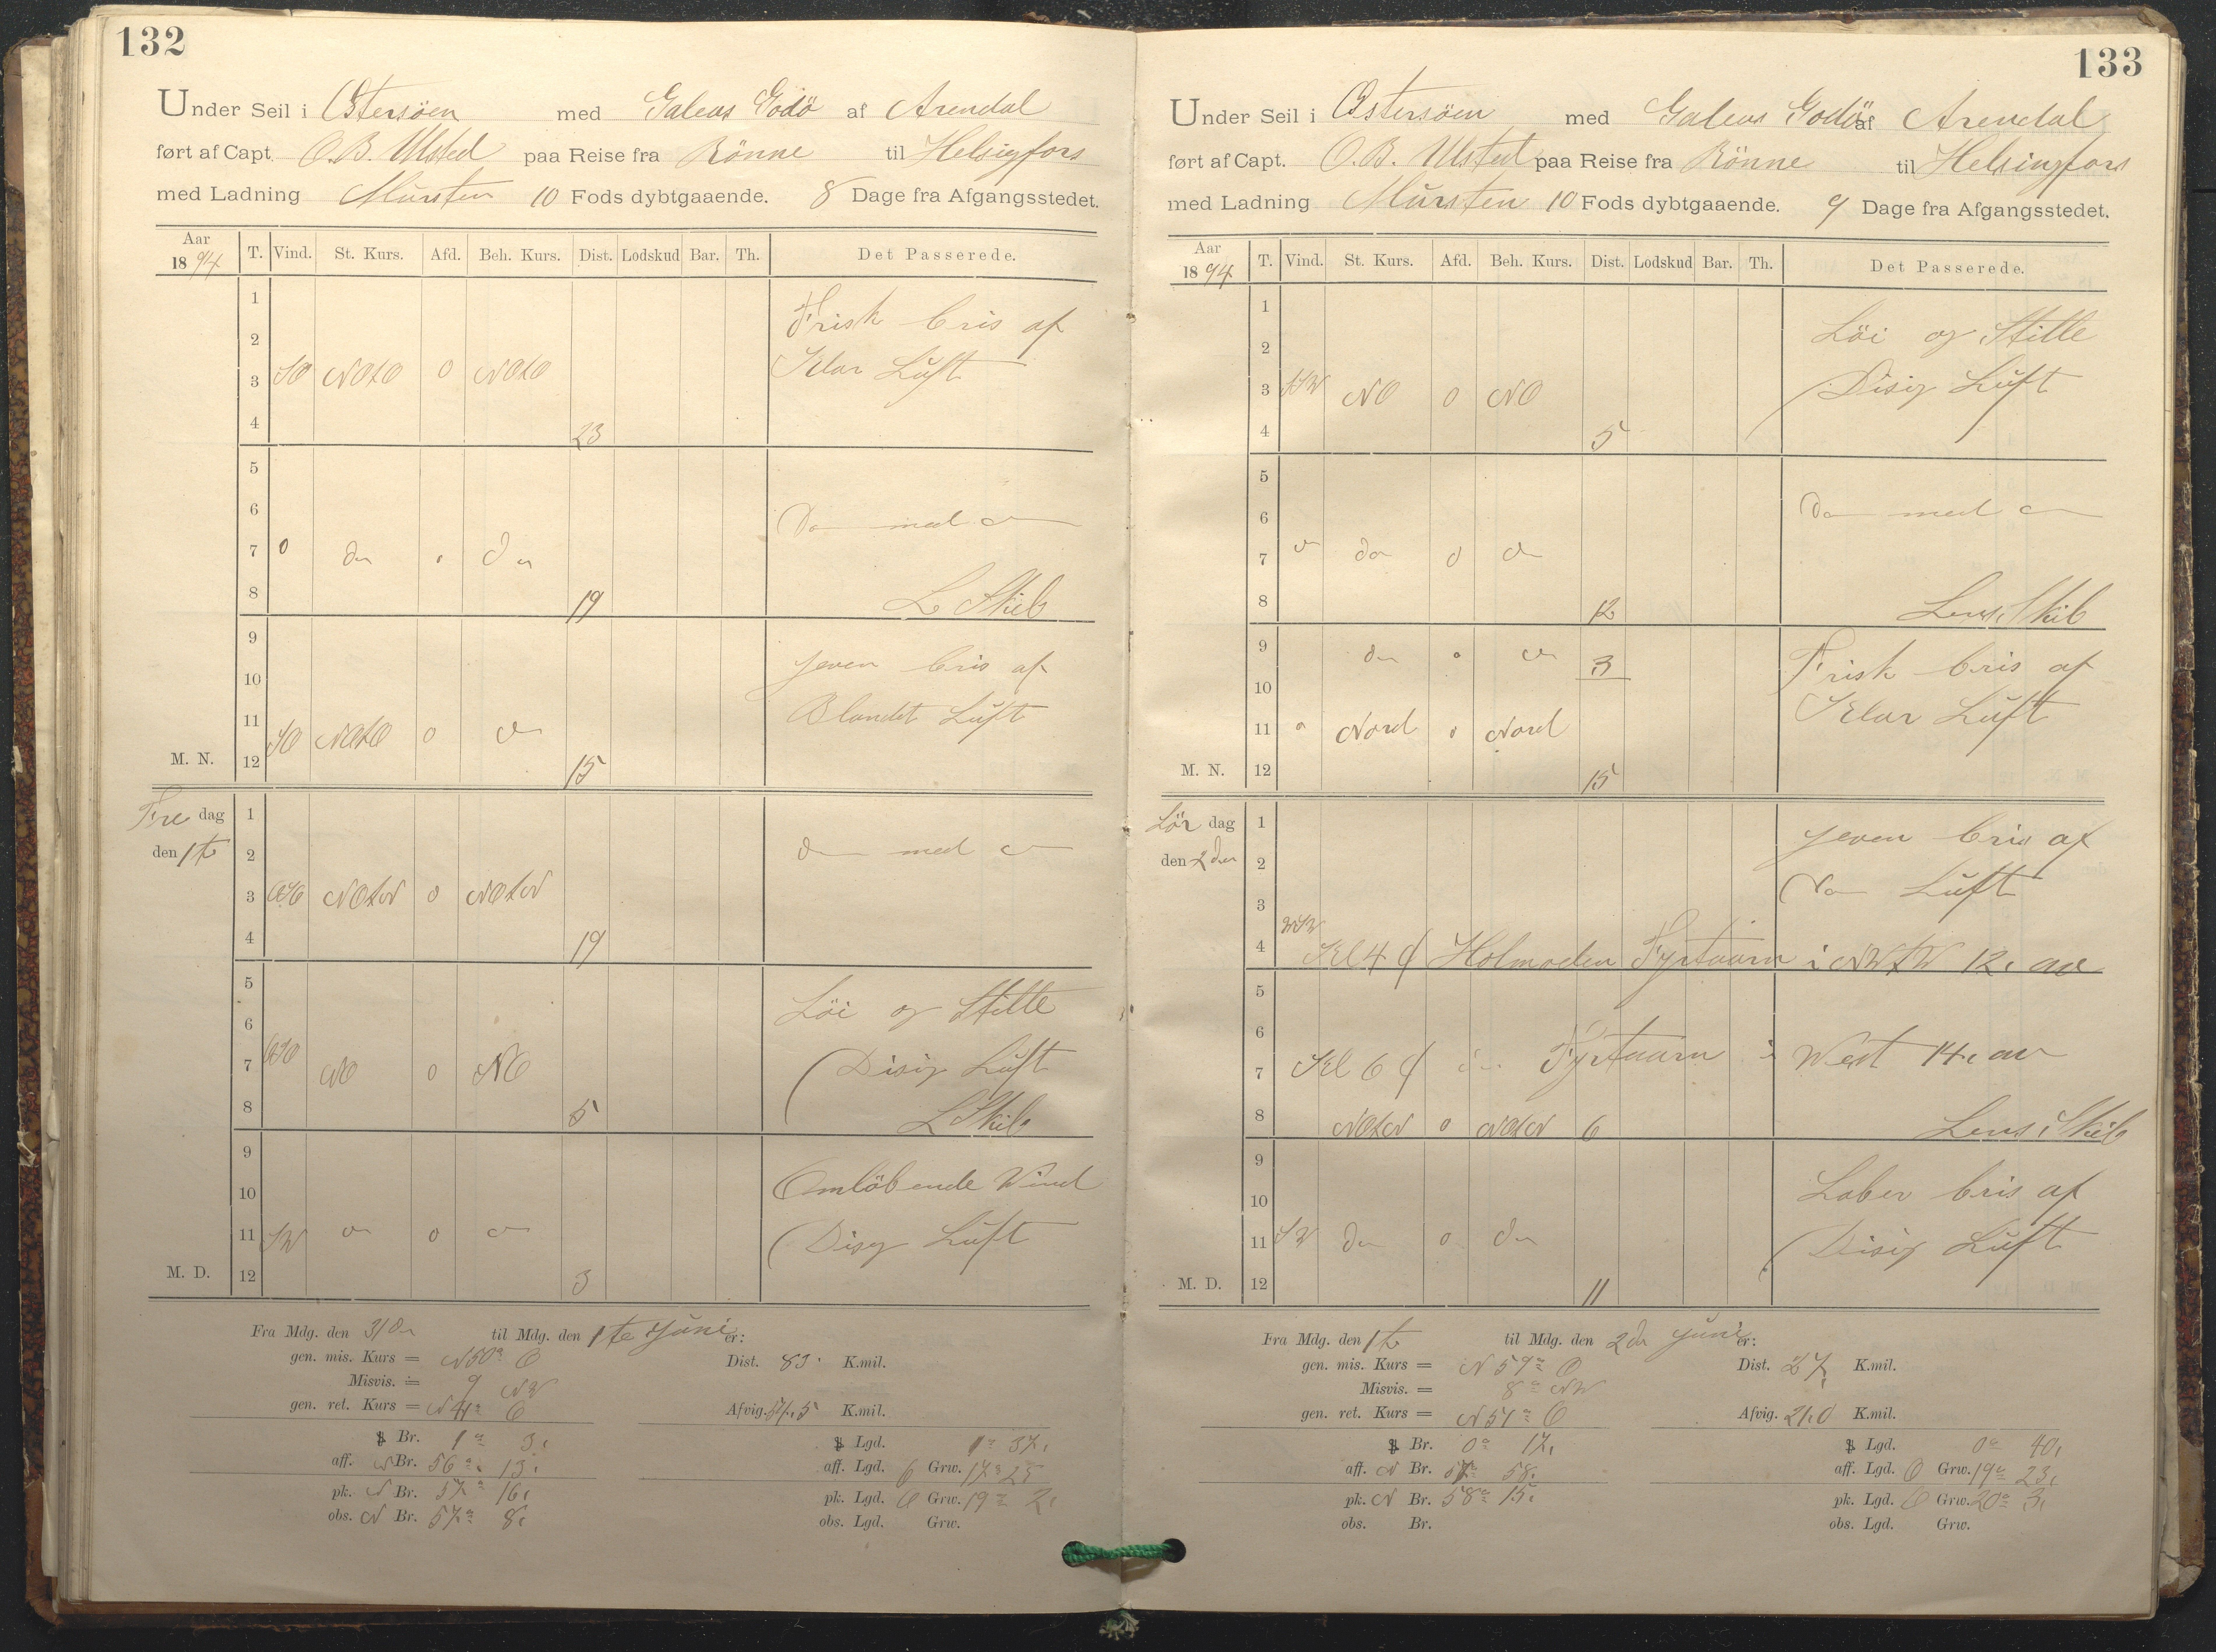 132
Under Seil i Østersöen med Galeas Godö af Arendal
ført af Capt. O. B. Ulsted paa Reise fra Rönne til Helsigfors
med Ladning Mursten 10 Fods dybtgaaende. 8 Dage fra Afgangsstedet.
Aar 1894 T. Vind. St. Kurs. Afd. Beh. Kurs. Dist. Lodskud Bar. Th. Det Passerede.
1
Frisk bris af
2
Klar Luft
3 SO NOtO 0 NOtO
4 23
5
6 Do med do
7 0 do 0 do
8 19 L Skib
9
jeven bris af
10
Blandet Luft
11 SO NOtO 0 do
M. N. 12 15
Fredag 1
den 1te 2 do med do
3 OSO NOtN 0 NOtN
4 19
5
Löi og Stille
6
7 OSO NO 0 NO Disig Luft
8 5 L Skib
9
10 Omlöbende Wind
11 SW do 0 do Disig Luft
M. D. 12 3
Fra Mdg. den 31de til Mdg. den 1te Juni er:
gen. mis. Kurs = N 50° O Dist. 83 K.mil.
Misvis. = 9 NW
gen. ret. Kurs = N 41° O Afvig. 54,5 K.mil.
Br. 1° 3, Lgd. 1° 37,
aff. N Br. 56° 13, aff. Lgd. O Grw. 17° 25
pk. N Br. 57° 16, pk. Lgd. O Grw. 19° 2,
obs. N Br. 57° 8, obs. Lgd. Grw.
133
Under Seil i Østersöen med Galeas Godö af Arendal
ført af Capt. O. B. Ulsted paa Reise fra Rönne til Helsingfors
med Ladning Mursten 10 Fods dybtgaaende. 9 Dage fra Afgangsstedet.
Aar 1894 T. Vind. St. Kurs. Afd. Beh. Kurs. Dist. Lodskud Bar. Th. Det Passerede.
1
Löi og Stille
2
3 SSW NO 0 NO Disig Luft
4 5
5
6 Do med do
7 do do 0 do
8 12 Lens Skib
9 do 0 do 3 Frisk bris af
10
Klar Luft
11 0 Nord 0 Nord
M. N. 12 15
Lördag 1 jeven bris af
den 2den 2
Do Luft
3
WSW
4 Kl 4 Holmoden Fyrtaarn i NWtW 12, av
5
6
7 Kl 6 do Fyrtaarn i West 14, av
8 NOtN 0 NOtN 6 Lens Skib
9
10 Laber bris af
11 SW do 0 do Disig Luft
M. D. 12 11
Fra Mdg. den 1te til Mdg. den 2den Juni er:
gen. mis. Kurs = N 59° O Dist. 27 K.mil.
Misvis. = 8° NW
gen. ret. Kurs = N 51° O Afvig. 21,0 K.mil.
Br. 0° 17, Lgd. 0° 40,
aff. N Br. 57° 58, aff. Lgd. O Grw. 19° 23,
pk. N Br. 58° 15, pk. Lgd. O Grw. 20° 3,
obs. Br. obs. Lgd. Grw.